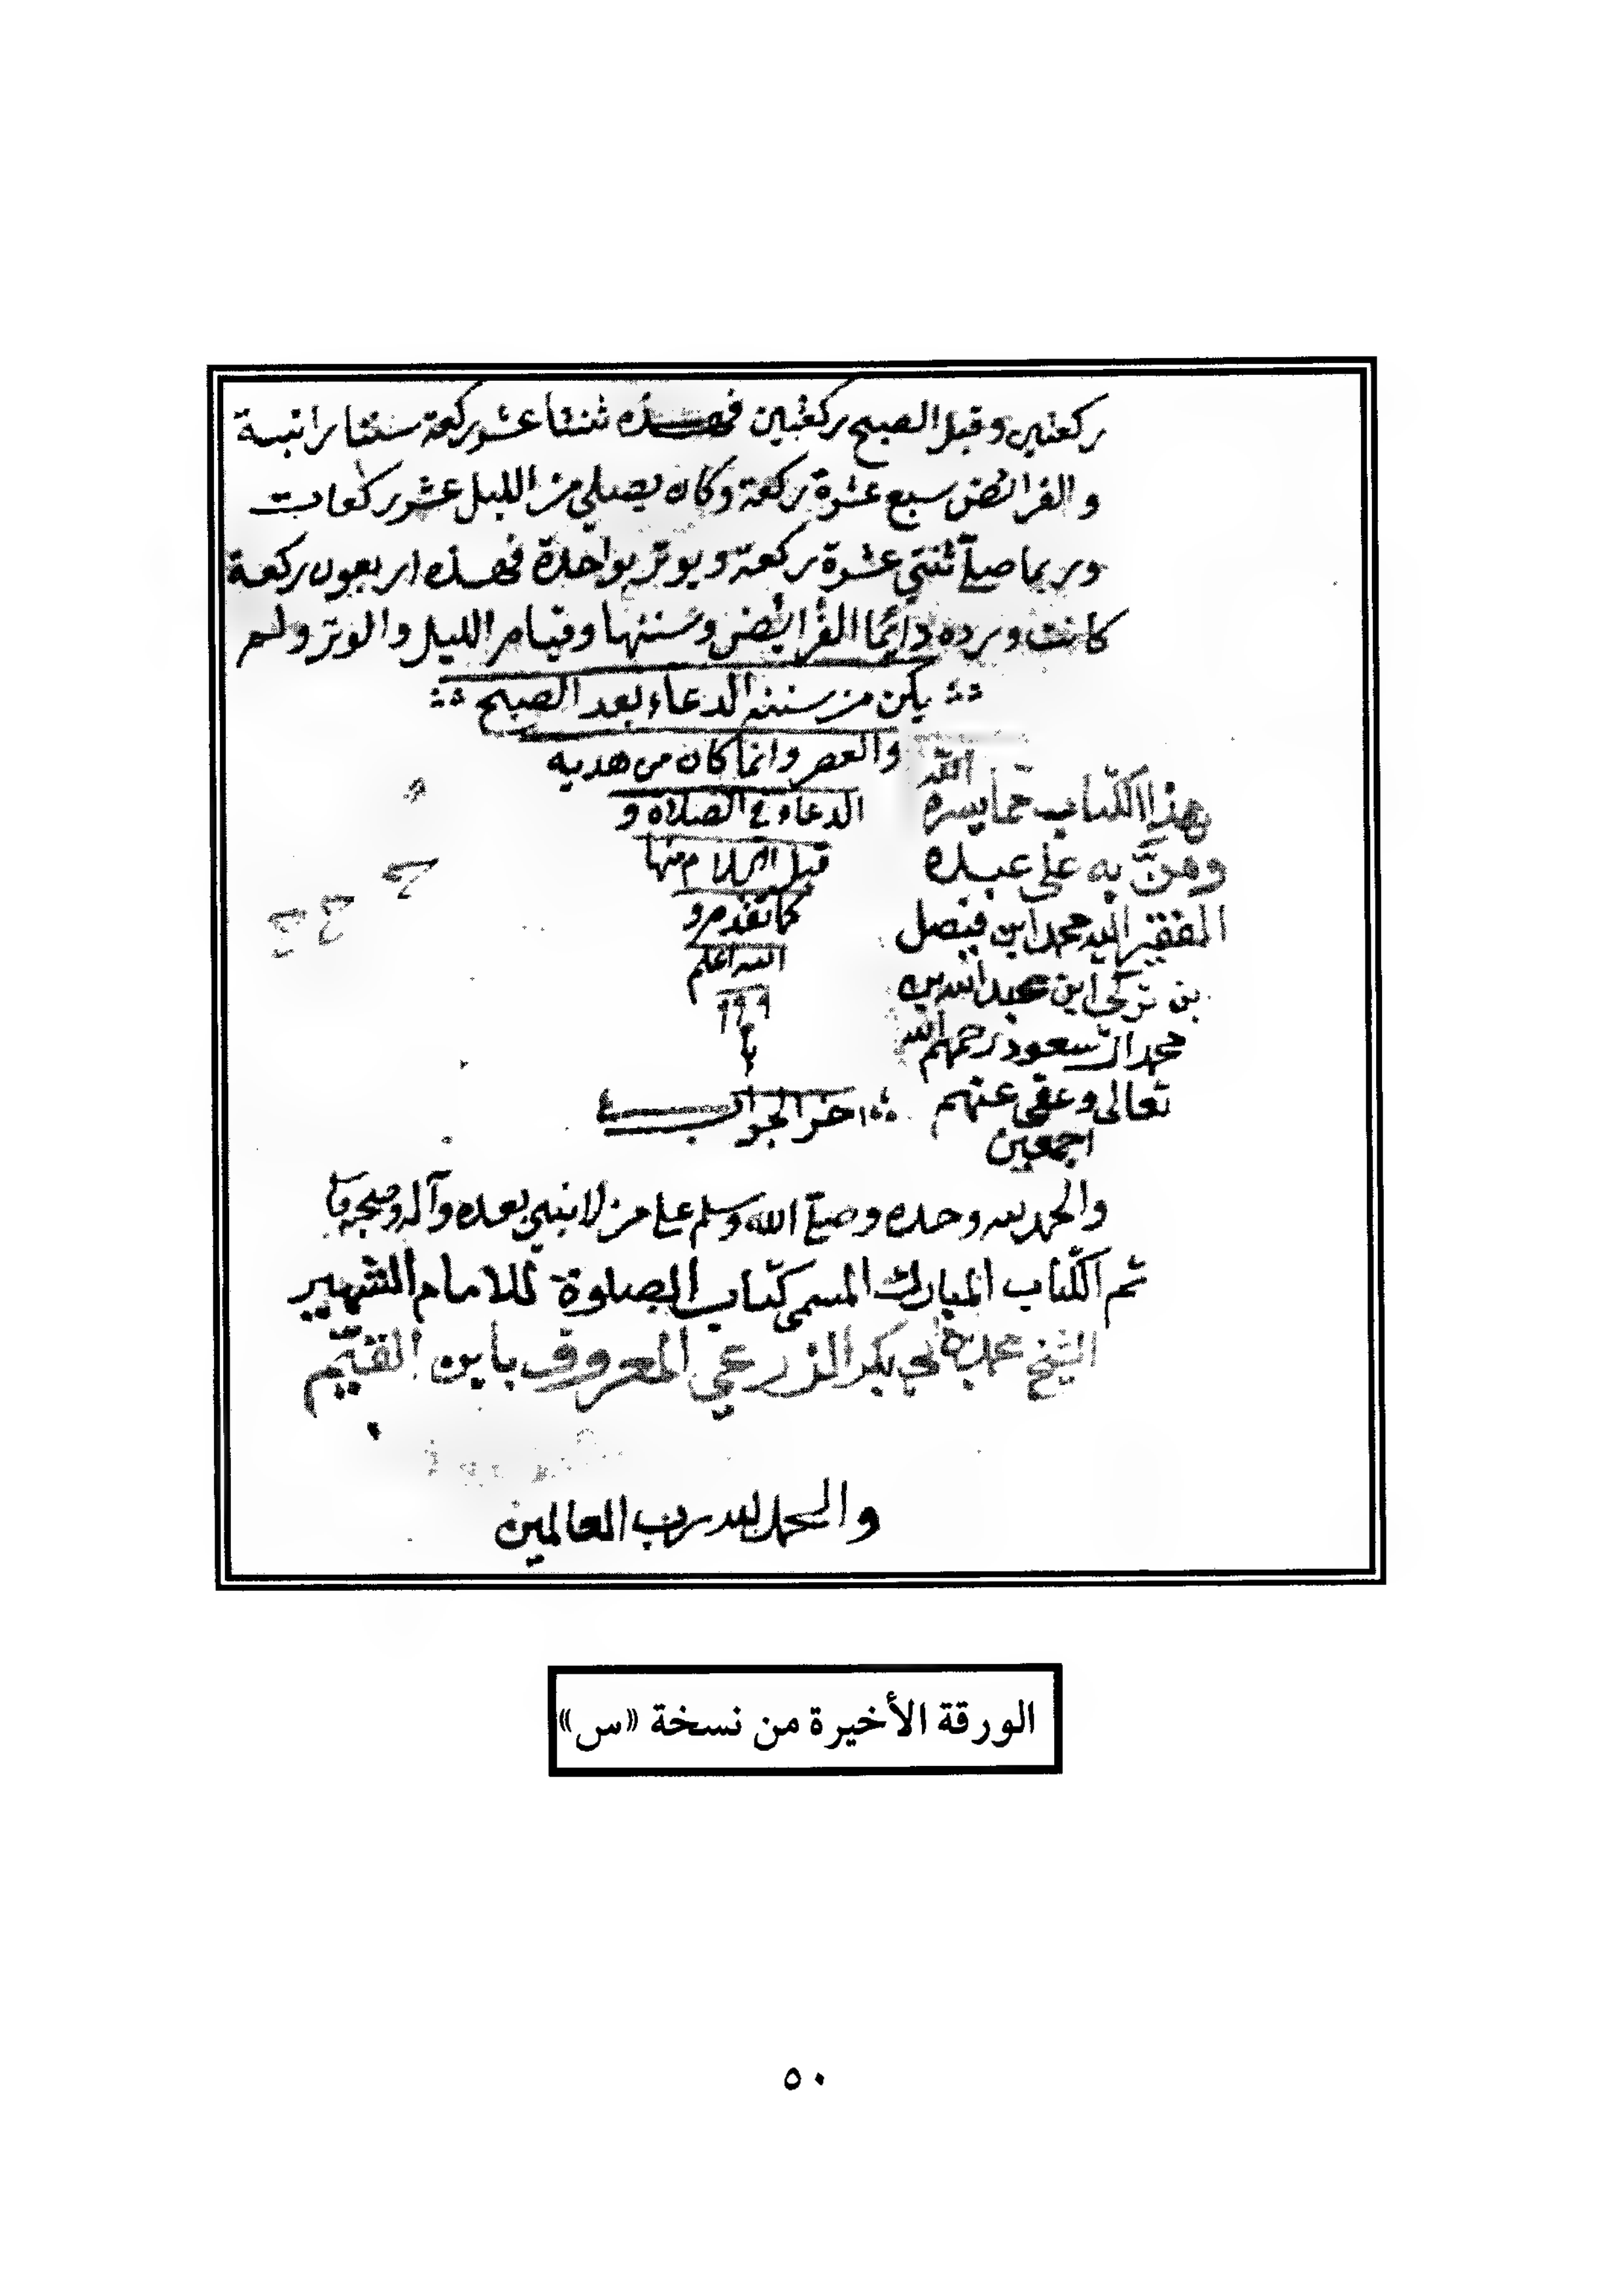 ركعتين وقبل الصبح ركعتين فهذه ثنتا عشر ركعة سننا راتبة
والفرائض سبع عشرة ركعة وكان يصلي من الليل عشر ركعات
وربما صلى ثنتي عشرة ركعة ويوتر بواحدة فهذه اربعون ركعة
كانت ورده دائما الفرائض وسننها وقيام الليل والوتر ولم
يكن من سننه الدعاء بعد الصبح
والعصر وانما كان من هديه
الدعاء في الصلاة و
قبل السلام منها
كما تقدم و
الله اعلم
اخر الجواب
هذا الكتاب مما يسره الله
ومنّ به على عبده
الفقير اليه محمد ابن فيصل
بن تركي ابن عبد الله بن
محمد ال سعود رحمهم الله
تعالى وعفى عنهم
اجمعين
والحمد لله وحده وصلى الله وسلم على من لا نبي بعده وآله وصحبه
تم الكتاب المبارك المسمى كتاب الصلوة للامام الشهير
الشيخ محمد بن ابي بكر الزرعي المعروف بابن القيّم
والحمد لله رب العالمين
الورقة الأخيرة من نسخة «س»
٥٠